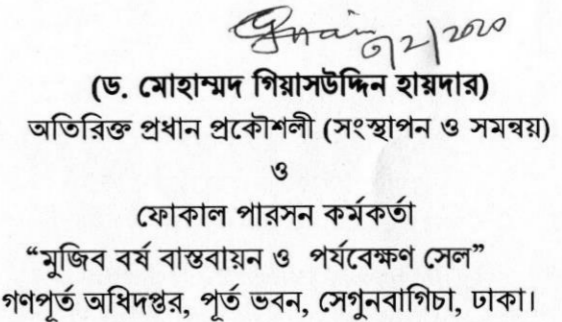 (ড. মোহাম্মদ গিয়াসউদ্দিন হায়দার)
অতিরিক্ত প্রধান প্রকৌশলী (সংস্থাপন ও সমন্বয়)
ও
ফোকাল পারসন কর্মকর্তা
“মুজিব বর্ষ বাস্তবায়ন ও পর্যবেক্ষণ সেল”
গণপূর্ত অধিদপ্তর, পূর্ত ভবন, সেগুনবাগিচা, ঢাকা।